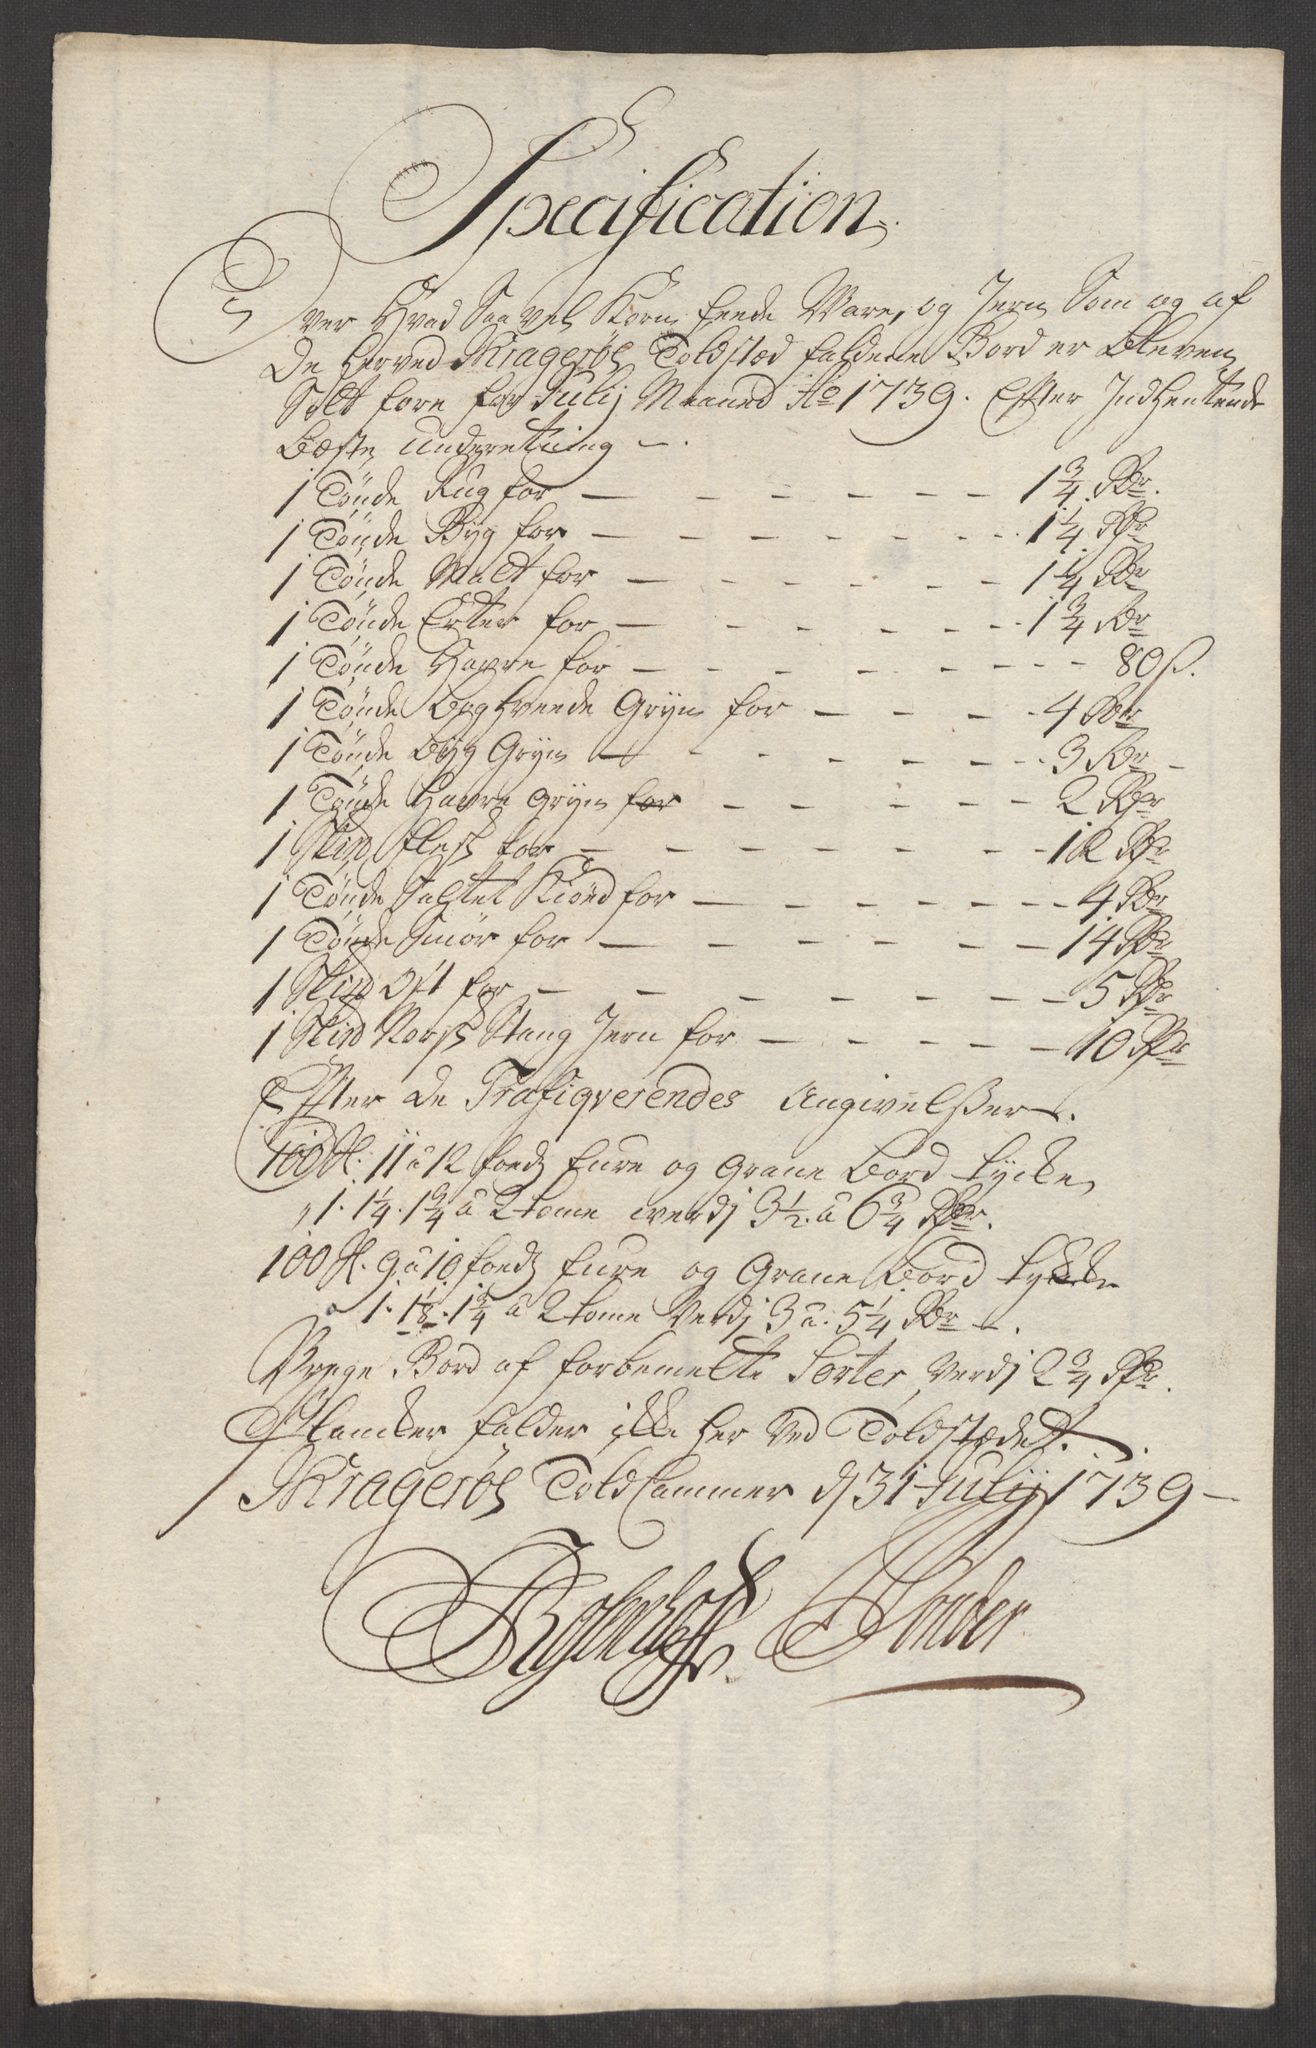 Specification
Over Hvad Saavel Korn feede Ware, og Jern Som og af
De herved Kragerøes Toldstæd faldene Bord er bleven
Solt fore for Julij Maaned Ao 1739. Efter Indhentende
beste underetning -.
1 Tønde Rug for - - - - - - - 1 3/4 Rdr.
1 Tønde Byg for - - - - - - - 1 1/4 Rdr
1 Tønde Malt for - - - - - - 1 1/4 Rdr
1 Tønde Erter for - - - - - - 1 3/4 Rdr
1 Tønde Havre for - - - - - - - 80 ß.
1 Tønde boghveede Gryn for - - - - 4 Rdr
1 Tønde byg Gryn - - - - - - - 3 Rdr -
1 Tønde Havre gryn for - - - - - 2 Rdr
1 Sk℔ flesk for - - - - - - - 12 Rdr
1 Tønde Saltet Kiød for - - - - - - 4 Rdr
1 Tønde Smør for - - - - - - 14 Rdr
1 Sk℔ Ost for - - - - - - 5 Rdr
1 Sk℔ Norsk Stang Jern for - - - - 10 Rdr
Efter de Trafiqverendes Angivelßer -.
100 St. 11 a 12 foeds fure og grane bord tycke
1. 1 1/4. 1 3/4 a 2 tome werdj 3 1/2. a 6 3/4 Rdr.
100 St. 9 a 10 foeds fure og Grane Bord tykke
a 1. 1 1/8. 1 3/4 a 2 tome Verdj 3 a. 5 1/4 Rdr -.
Vrage Bord af forbemelte Sorter Verdj 2 3/4 Rdr.
Plancker falder ikke her Ved Toldstædet.
Kragerøes Told Cammer d 31 Julij 1739 -